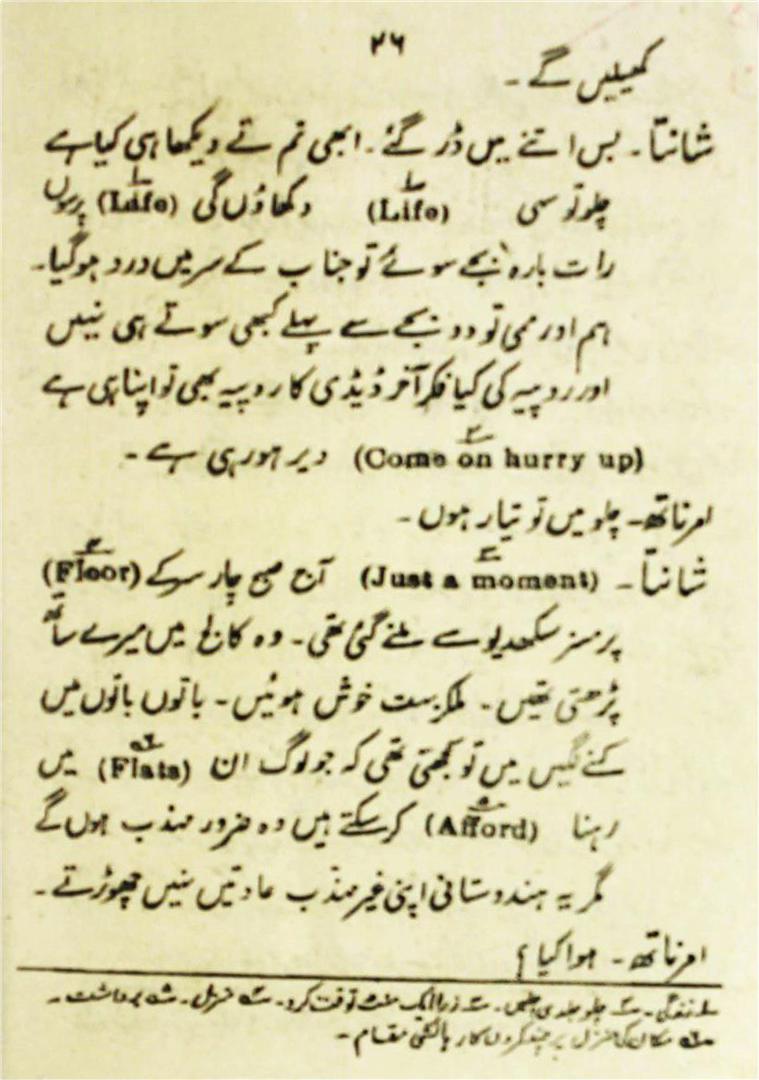 ۲۶
کھیلیں گے۔
شانتا۔ بس اتنے میں ڈر گئے۔ ابھی تم نے دیکھا ہی کیا ہے
چلو تو سہی (Life) دکھاؤں گی (Life) پرسوں
رات بارہ بجے سوئے تو جناب کے سر میں درد ہوگیا۔
ہم اور ممی تو دو بجے سے پہلے کبھی سوتے ہی نہیں
اور روپیہ کی کیا فکر آخر ڈیڈی کا روپیہ بھی تو اپنا ہی ہے
(Come on hurry up) دیر ہو رہی ہے۔
امرناتھ۔ چلو میں تو تیار ہوں۔
شانتا۔ (Just a moment) آج صبح چار بجے (Floor)
پر مسز سکھدیو سے ملنے گئی تھی۔ وہ کالج میں میرے ساتھ
پڑھتی تھیں۔ ملکر بہت خوش ہوئیں۔ باتوں باتوں میں
کہنے لگیں میں تو سمجھتی تھی کہ جو لوگ ان (Flats) میں
رہنا (Afford) کر سکتے ہیں وہ ضرور مہذب ہوں گے
مگر یہ ہندوستانی اپنی غیر مہذب عادتیں نہیں چھوڑتے۔
امرناتھ۔ ہوا کیا؟
زندگی۔ چلو جلدی چلیں۔ ذرا ایک منٹ توقف کرو۔ منزل۔ برداشت۔
مکان کی منزل پر چند کمروں کا رہائشی مقام۔